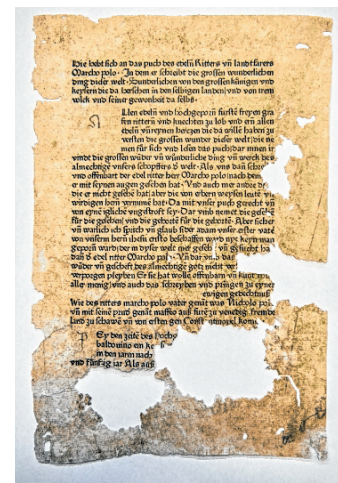 Hie hebt sich an das puch des edelñ Ritters vñ landtfarers
Marcho polo · In dem er schreibt die grossen wunderlichen
ding diser welt · Sunderlichen von den grossen künigen vnd
keysern die da herschen in den selbigen landen vnd von irem
volck vnd seiner gewonheit da selbs ·
Allen edeln vñ hochgeporñ fürstē freyen gra
fen rittern vnd knechten zu lob vnd eñ allen
edelñ vñ reynen herczen die da willē haben zu
versten die grossen wunder diser welt die ne
men für sich vnd lesen das puch dar innen ir
vindt die grossen wũder vñ wũnderliche ding vñ werck des
almechtigē vnsers schöpffers d̕ welt · Als vnd dan schreibt
vnd offenbart der edel ritter herr Marcho polo nach dem
er mit seynen augen gesehen hat · Vnd auch mer andre dy
die er nicht gesehē hat aber die von erbern weysen leutē vñ
wirdigen hern vernumē hat · Da mit vnser puch gerecht vñ
von eynē igliche vngestroft sey · Dar vmb nemet die geschē
für die gesehen vnd die gehortē für die gehortē · Aber sicher
vñ warlich ich sprich vñ glaub sider adam vnser erster vater
von vnserm herñ ihesu cristo beschaffen ward nye keyn man
geporñ ward der in dyser welt mer geseh vñ gesucht ha
dan d̕ edel ritter Marcho pol · Vñ dar vmb das
wũder vñ gescheft des almechtigē gott nicht ver
verporgen pleyben Er sie hat wolle offenbarn vñ kunt
alle menig vnd auch das schreyben vnd pringen zu eyner
ewigen gedechtnuß
Wie des ritters marcho polo vater gnāt was Nicholo pol
vñ mit seinē prud gnāt maffio auß furē zu venedig fremde
land zu schawē vñ von ersten gen Const tinopel komē
Ey den zeitē des hochg
baldouino ein ke
in den iaren nach
vnd fünfzig iar Als auß